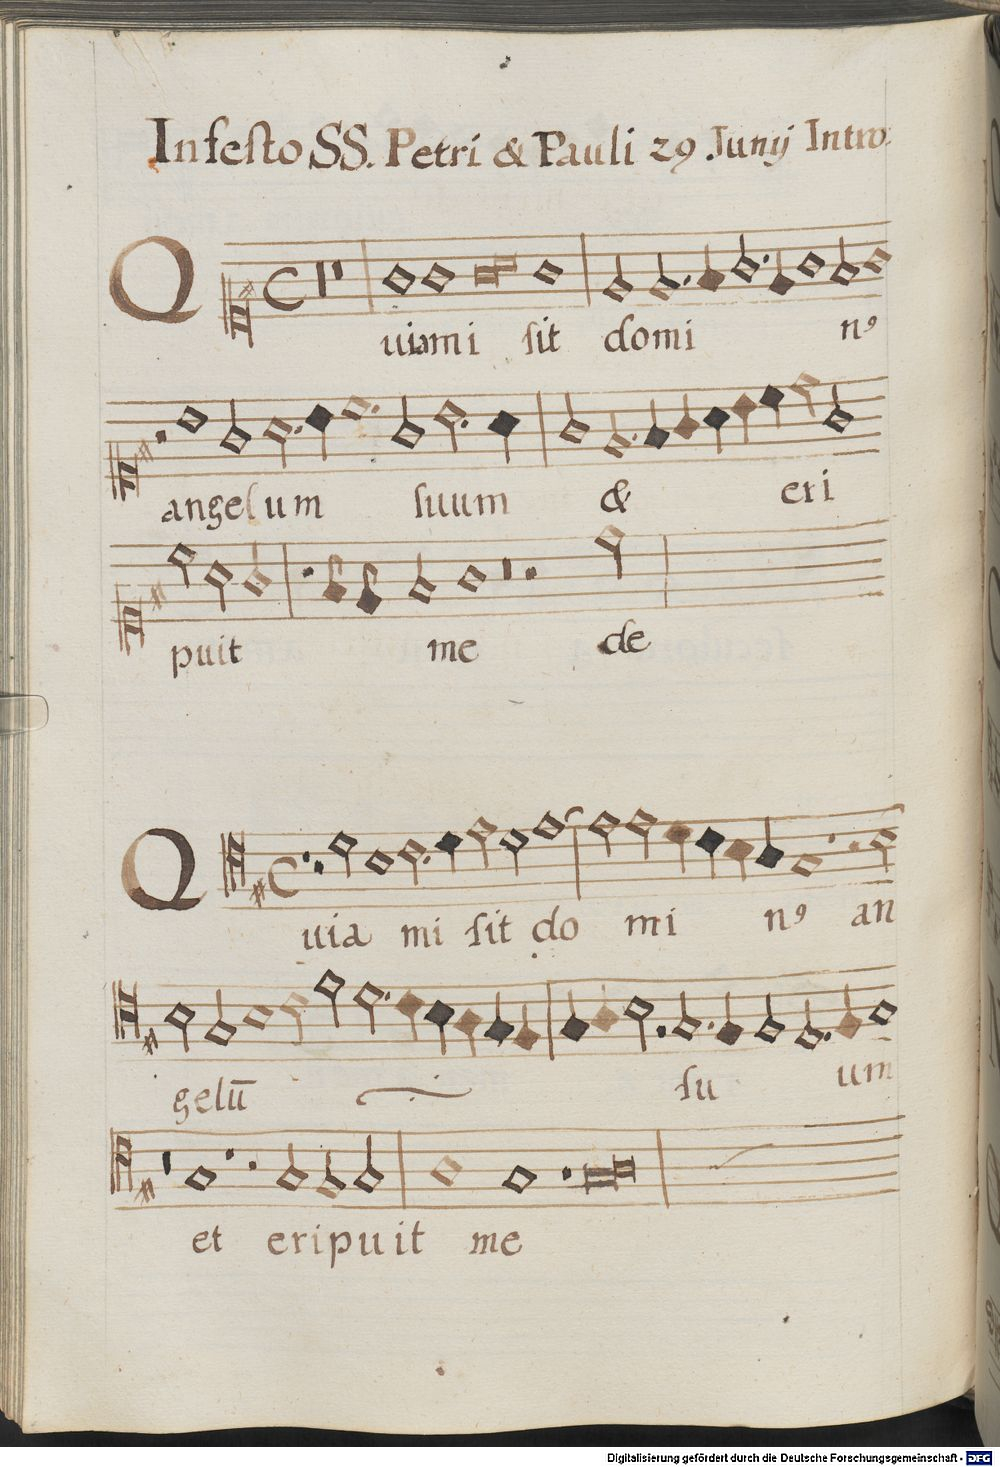 In festo SS. Petri & Pauli 29 Junij Intro:
Q
uiami sit domi nꝰ
angelum suum & eri
puit me de
Q
uia mi sit do mi nꝰ an
gelū su um
et eripuit me
Digitalisierung gefördert durch die Deutsche Forschungsgemeinschaft - DFG